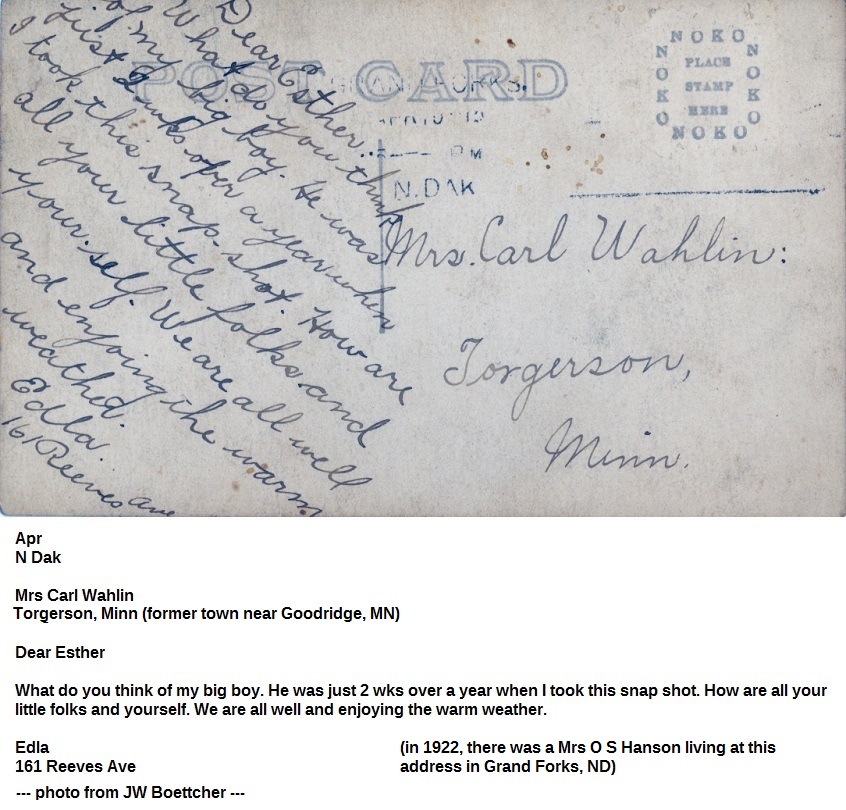 POST CARD
NOKO
NOKO
PLACE
STAMP
HERE
NOKO
NOKO
FORKS.
PM
N.DAK
Dear Esther
What do you think
of my big boy. He was
just 2 wks over a year when
I took this snap-shot. How are
all your little folks and
your-self. We are all well
and enjoing the warm
weather.
Edla.
161 Reeves ave
Mrs. Carl Wahlin:
Torgerson,
Minn.
Apr
N Dak
Mrs Carl Wahlin
Torgerson, Minn (former town near Goodridge, MN)
Dear Esther
What do you think of my big boy. He was just 2 wks over a year when I took this snap shot. How are all your
little folks and yourself. We are all well and enjoying the warm weather.
Edla
161 Reeves Ave
(in 1922, there was a Mrs O S Hanson living at this
address in Grand Forks, ND)
--- photo from JW Boettcher ---